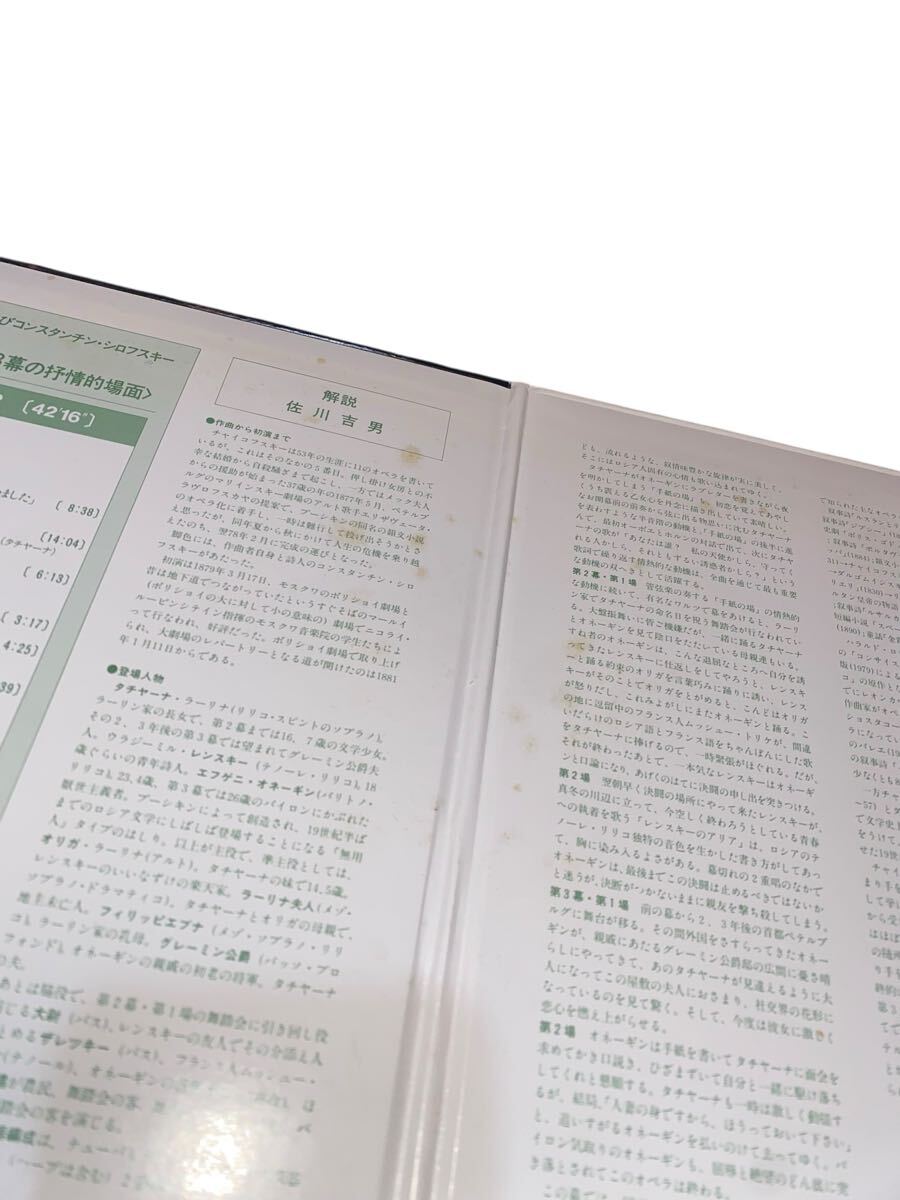 びコンスタンチン・シロフスキー
3幕の抒情的場面〉
〔42'16"〕
ました」 〔 8:38〕
〔14:04〕
(タチヤーナ)
〔 6:13〕
〔 3:17〕
4:25〕
39〕
解説
佐川吉男
●作曲から初演まで
チャイコフスキーは53年の生涯に11のオペラを書いて
いるが、これはそのなかの5番目。押し掛け女房との不
幸な結婚から自殺騒ぎまで起こし、一方ではメック夫人
からの援助が始まった37歳の年の1877年5月、ペテルブ
ルグのマリインスキー劇場のアルト歌手エリザヴェータ・
ラヴロフスカヤの提案で、プーシキンの同名の韻文小説
のオペラ化に着手し、一時は難行して投げ出そうかとさ
え思ったが、同年夏から秋にかけて人生の危機を乗り越
えたのち、翌78年2月に完成の運びとなった。
脚色には、作曲者自身と詩人のコンスタンチン・シロ
フスキーがあたった。
初演は1879年3月17日、モスクワのボリショイ劇場と
昔は地下道でつながっていたというすぐそばのマールイ
(ボリショイの大に対して小の意味の)劇場でニコライ・
ルービンシテイン指揮のモスクワ音楽院の学生たちによ
って行なわれ、好評だった。ボリショイ劇場で取り上げ
られ、大劇場のレパートリーとなる道が開けたのは1881
年1月11日からである。
●登場人物
タチヤーナ・ラーリナ(リリコ・スピントのソプラノ)、
ラーリン家の長女で、第2幕までは16、7歳の文学少女。
その2、3年後の第3幕では望まれてグレーミン公爵夫
人。ウラジーミル・レンスキー(テノーレ・リリコ)、18
歳ぐらいの青年詩人。エフゲニ・オネーギン(バリトノ・
リリコ)、23、4歳、第3幕では26歳のバイロンにかぶれた
厭世主義者。プーシキンによって創造され、19世紀半ば
までのロシア文学にしばしば登場することになる「無用
人」タイプのはしり。以上が主役で、準主役としては、
オリガ・ラーリナ(アルト)、タチヤーナの妹で14、5歳。
レンスキーのいいなずけの楽天家。ラーリナ夫人(メゾ・
ソプラノ・ドラマティコ)、タチヤーナとオリガの母親で、
地主未亡人。フィリッピエブナ(メゾ・ソプラノ・リリ
コ)、ラーリン家の乳母。グレーミン公爵(バッソ・プロ
フォンド)、オネーギンの親戚の初老の将軍。タチヤーナ
の夫。
あとは脇役で、第2幕・第1場の舞踏会に引き回し役
大尉(バス)、レンスキーの友人でその介添え人
とめるザレツキー(バス)、フランス人ムッシュー・
(テノール)、オネーギンの
が農民、舞踏会の客
踏会の客を演じる。
編成は、
(ハープは含む)2
ども、流れるような、叙情味豊かな旋律が実に美しく、
そこにはロシア人固有の心情も歌い込まれてゆく。
タチヤーナがオネーギンにラブレターを書きながら夜
を明かしてしまう「手紙の場」も、初恋を覚えてあやし
くうち震える乙女心を丹念に描き出していて素晴しい。
なお開幕前の前奏から弦に出る物思いに沈むタチヤーナ
を表わすような半音階の動機と、「手紙の場」の後半に進
んで、最初オーボエとホルンの対話で出て、次にタチヤ
ーナの歌が「あなたは誰? 私の天使かしら、守ってく
れる人かしら、それともずるい誘惑者かしら?」という
歌詞で繰り返す情熱的な動機は、全曲を通じて最も重要
な動機の双へきとして活躍する。
第2幕・第1場 管弦楽の奏する「手紙の場」の情熱的
な動機に続いて、有名なワルツで幕をあけると、ラーリ
ン家でタチヤーナの命名日を祝う舞踏会が行なわれてい
る。大盤振舞いに皆ご機嫌だが、一緒に踊るタチヤーナ
とオネーギンを見て陰口をたたいている母親連もいる。
すね者のオネーギンは、こんな退屈なところへ自分を誘
ってきたレンスキーに仕返しをしてやろうと、レンスキ
ーと踊る約束のオリガを言葉巧みに踊りに誘い、レンス
キーがそのことでオリガをとがめると、こんどはオリガ
が怒りだし、これみよがしにまたオネーギンと踊る。こ
の地に逗留中のフランス人ムッシュー・トリケが、間違
いだらけのロシア語とフランス語をちゃんぽんにした歌
をタチヤーナに捧げるので、一時緊張がほぐれる。だが、
それが終わったあとで、一本気なレンスキーはオネーギ
ンと口論になり、あげくのはてに決闘の申し出を突きつける。
第2場 翌朝早く決闘の場所にやって来たレンスキーが、
真冬の川辺に立って、今空しく終わろうとしている青春
への執着を歌う「レンスキーのアリア」は、ロシアのテ
ノーレ・リリコ独特の音色を生かした書き方がしてあっ
て、胸に染み入るよさがある。幕切れの2重唱のなかで
オネーギンは、最後までこの決闘は止めるべきではないか
と迷うが、決断がつかないままに親友を撃ち殺してしまう。
第3幕・第1場 前の幕から2、3年後の首都ペテルブ
ルグに舞台が移る。その間外国をさすらってきたオネー
ギンが、親戚にあたるグレーミン公爵邸の広間に憂さ晴
らしにやってきて、あのタチヤーナが見違えるように大
人になってこの屋敷の夫人におさまり、社交界の花形に
なっているのを見て驚く。そして、今度は彼女に激しく
恋心を燃え上がらせる。
第2場 オネーギンは手紙を書いてタチヤーナに面会を
求めてかき口説き、ひざまずいて自分と一緒に駆け落ち
してくれと懇願する。タチヤーナも一時は激しく動揺す
るが、結局、「人妻の身ですから、ほうっておいて下さい」
と、追いすがるオネーギンを払いのけて去ってゆく。バ
イロン気取りのオネーギンも、屈辱と絶望のどん底に突
き落とされてこのオペラは終わる。
この幕では、
て知られた主なオペラ
叙事詩「ルスランとリ
叙事詩「ジプシー」(18
史劇「ボリス・ゴド
：叙事詩「ポルタヴ
ッパ」(1884)；韻文小
31)→チャイコフス
→ダルゴムイシス
リエリ」(1830)→リ
ルタン皇帝の物語
：叙事詩「ルサルカ
短編小説「スペー
(1890)；童話「金鶏
ハラルド・ロー
の「コンサイス
版(1979)による
」の原作とな
でにレオンカ
作曲家がオペ
ショスタコー
のバレエ(19
の叙事詩「
少なくとも8
一方チャ
～57)とダ
で文学史上
をうけて、
せた19世
チャイ
まり手を
して挙
から受
はほぼ
の抽
り手を
終的に